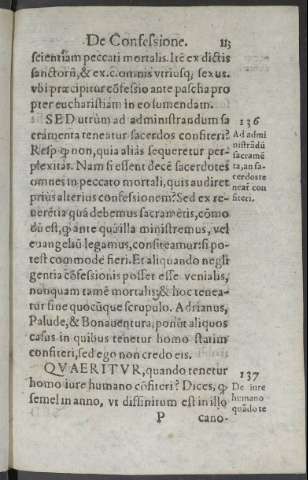 De Confessione. 113
scientiam peccati mortalis. Itẽ ex dictis
sanctorũ, & ex.c.omnis vtriusq; sexus.
vbi præcipitur cõfessio ante pascha pro
pter eucharistiam in eo sumendam.
SED vtrùm ad administrandum sa
cramenta teneatur sacerdos confiteri?
Resp. q̃ non, quia aliàs sequeretur per-
plexitas. Nam si essent decẽ sacerdotes
omnes in peccato mortali, quis audiret
priùs alterius confessionem? Sed ex re-
uerẽtia quã debemus sacramẽtis, cõmo
dũ est, q̃ ante quã illa ministremus, vel
euangeliũ legamus, confiteamur: si po-
test commode fieri. Et aliquando negli
gentia cõfessionis posset esse venialis,
nunquam tamẽ mortalis; & hoc tenea-
tur sine quocũque scrupulo. Adrianus,
Palude, & Bonauentura, ponũt aliquos
casus in quibus tenetur homo statim
confiteri, sed ego non credo eis.
QVAERITVR, quando tenetur
homo iure humano cõfiteri? Dices, q̃
semel in anno, vt diffinitum est in illo
P cano-
136
Ad admi
nistrãdũ
sacramẽ
ta, an sa-
cerdos te
neat con
fiteri.
137
De iure
humano
quãdo te